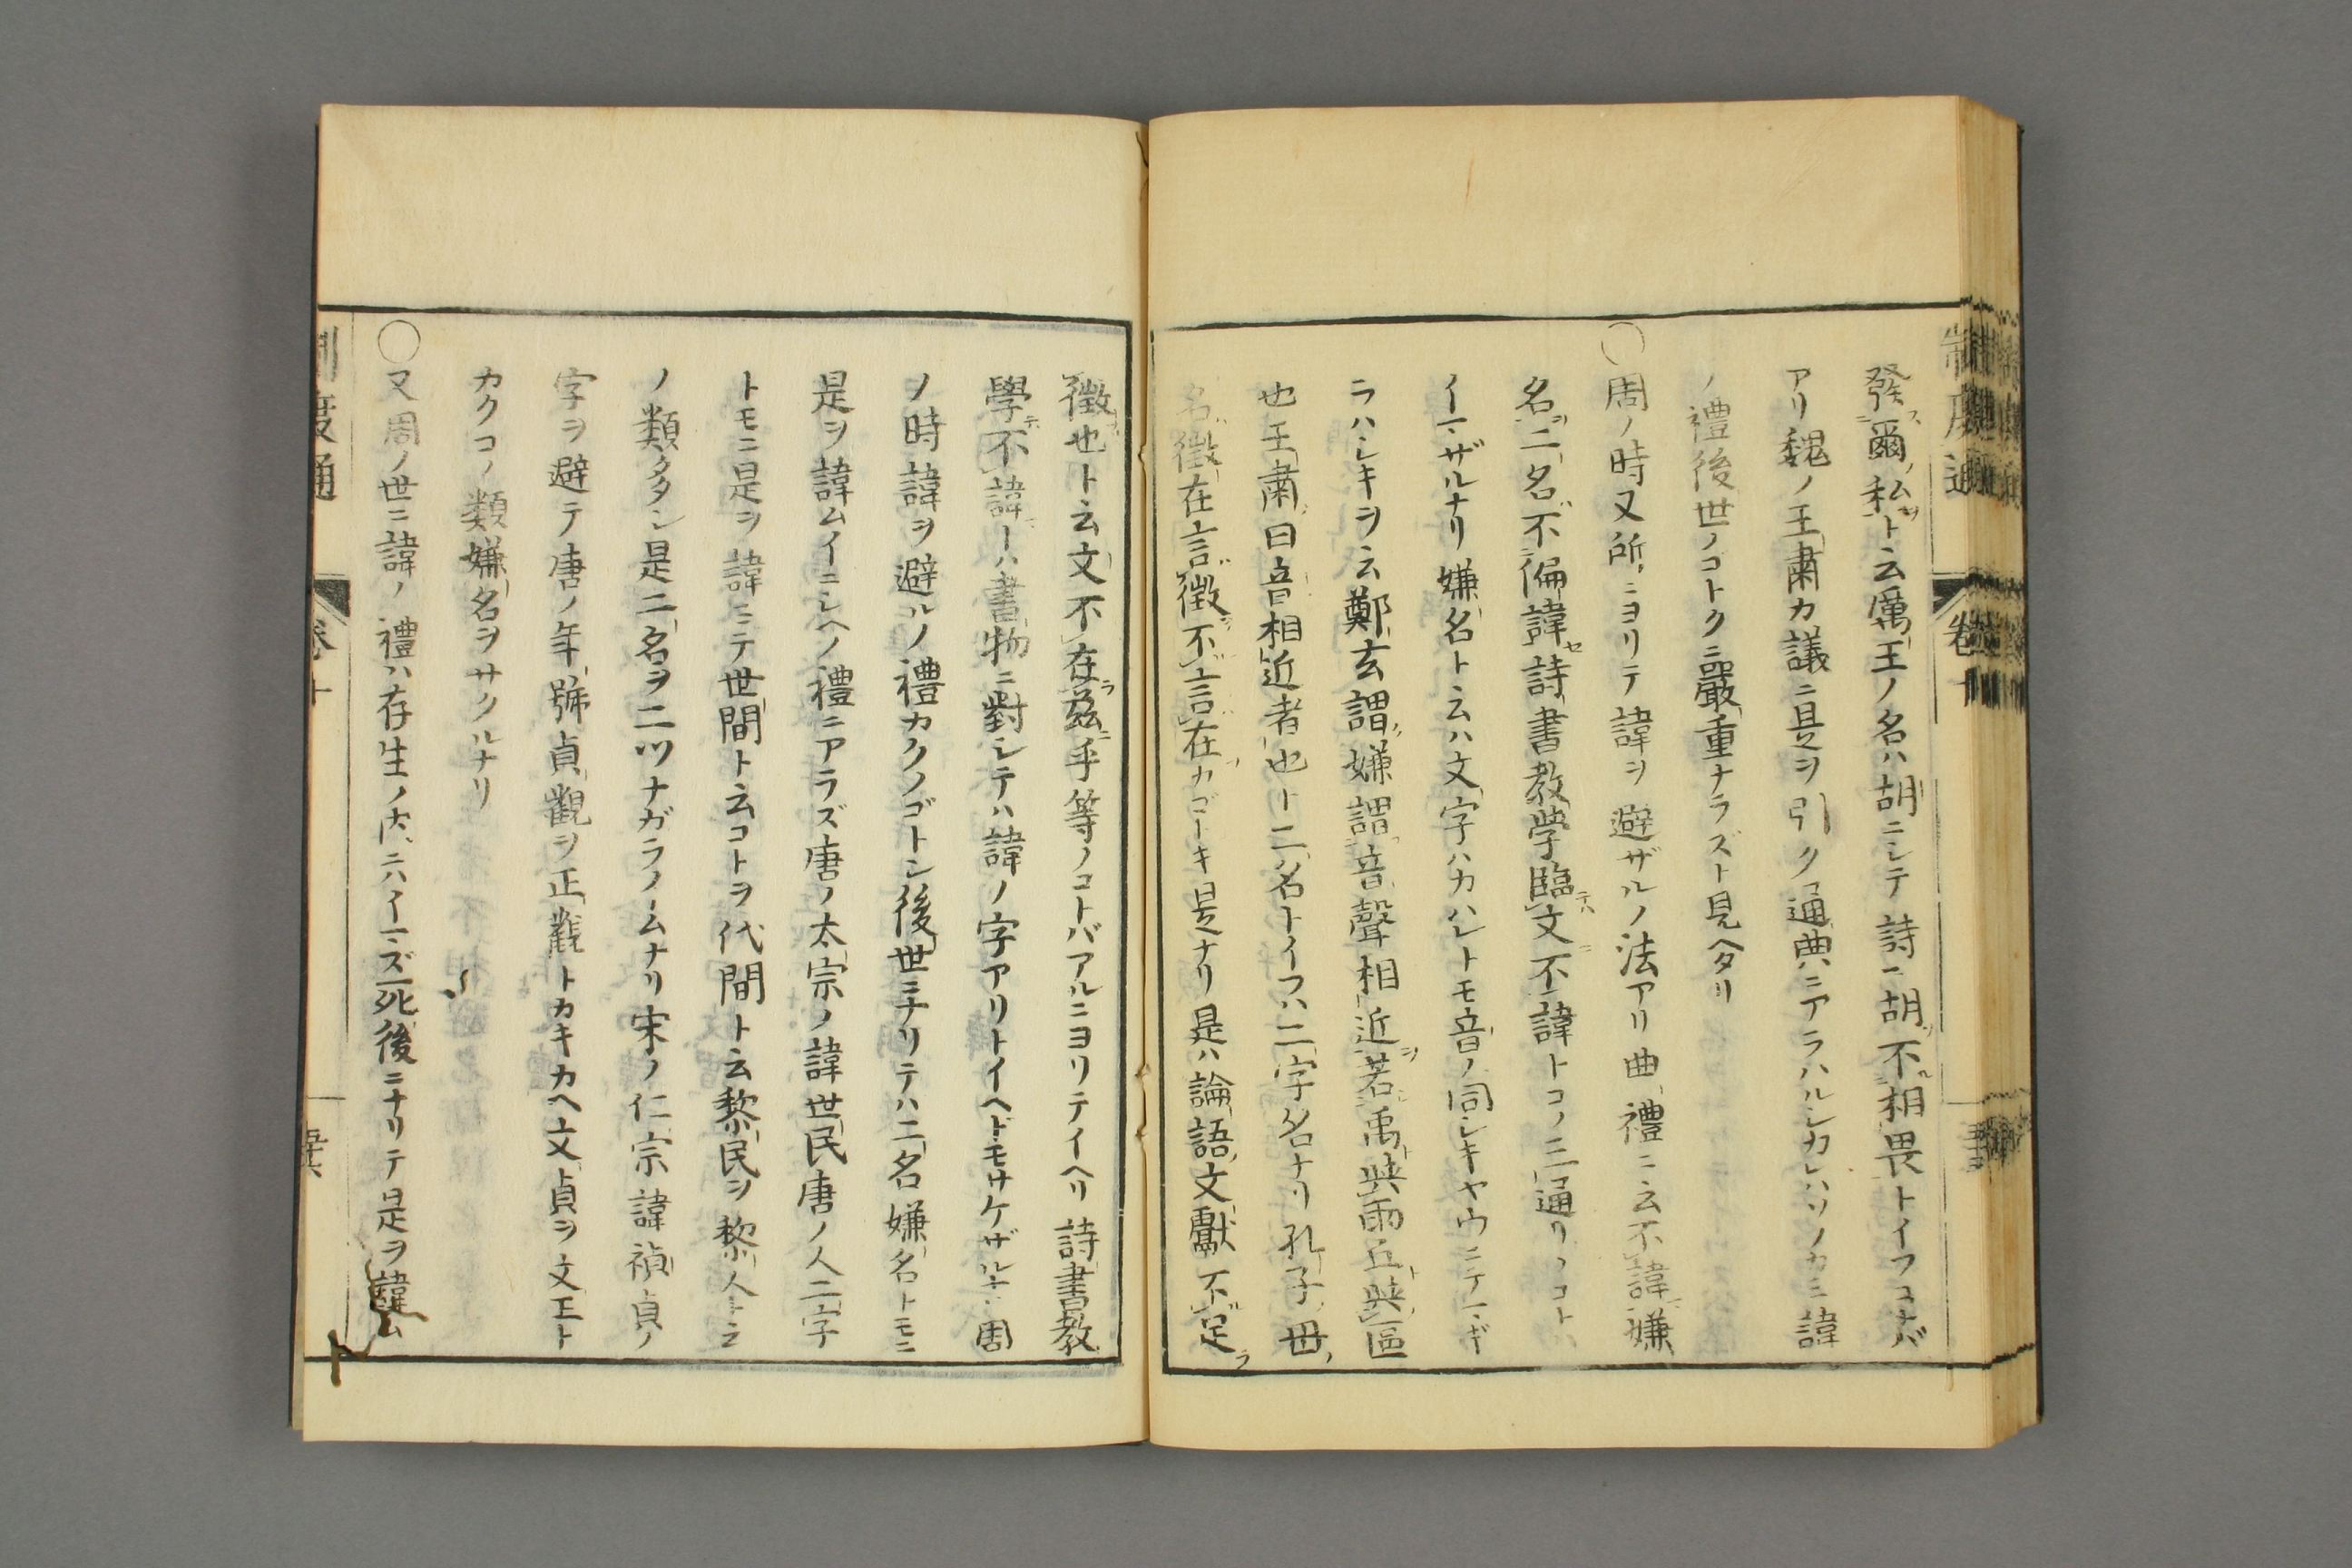 發爾私ト云厲王ノ名ハ胡ニシテ詩ニ胡不相畏トイフコトバ
アリ魏ノ王肅カ議ニ是ヲ引ク通典ニアラハルシカレハソノカミ諱
ノ禮後世ノコトクニ嚴重ナラズト見ヘタリ
○周ノ時又所ニヨリテ諱ヲ避ザルノ法アリ曲禮ニ云不諱嫌
名二名不偏諱詩書教学臨文不諱トコノ三通リノコトハ
イマザルナリ嫌名ト云ハ文字ハカハレトモ音ノ同シキヤウニテマギ
ラハシキヲ云鄭玄謂嫌謂音聲相近若禹與雨丘與區
也王肅曰音相近者也ト二名トイフハ二字名ナリ孔子母ノ
名徵在言徵不言在カゴトキ是ナリ是ハ論語文獻不足
徵也ト云文不在茲乎等ノコトバアルニヨリテイヘリ詩書教
學不諱トハ書物ニ對シテハ諱ノ字アリトイヘドモサケザルナリ周
ノ時諱ヲ避ルノ禮カクノゴトシ後世ニナリテハ二名嫌名トモニ
是ヲ諱ムイニシヘノ禮ニアラズ唐ノ太宗ノ諱世民唐ノ人二字
トモニ是ヲ諱ミテ世間ト云コトヲ代間ト云黎民ヲ黎人ト云
ノ類タタシ是二名ヲ二ツナガライムナリ宋ノ仁宗諱禎貞ノ
字ヲ避テ唐ノ年號貞觀ヲ正觀トカキカヘ文貞ヲ文正ト
カクコノ類嫌名ヲサクルナリ
○又周ノ世ニ諱ノ禮ハ存生ノ内ニハイマズ死後ニナリテ是ヲ諱ム
制度通
卷十
制度通
卷十